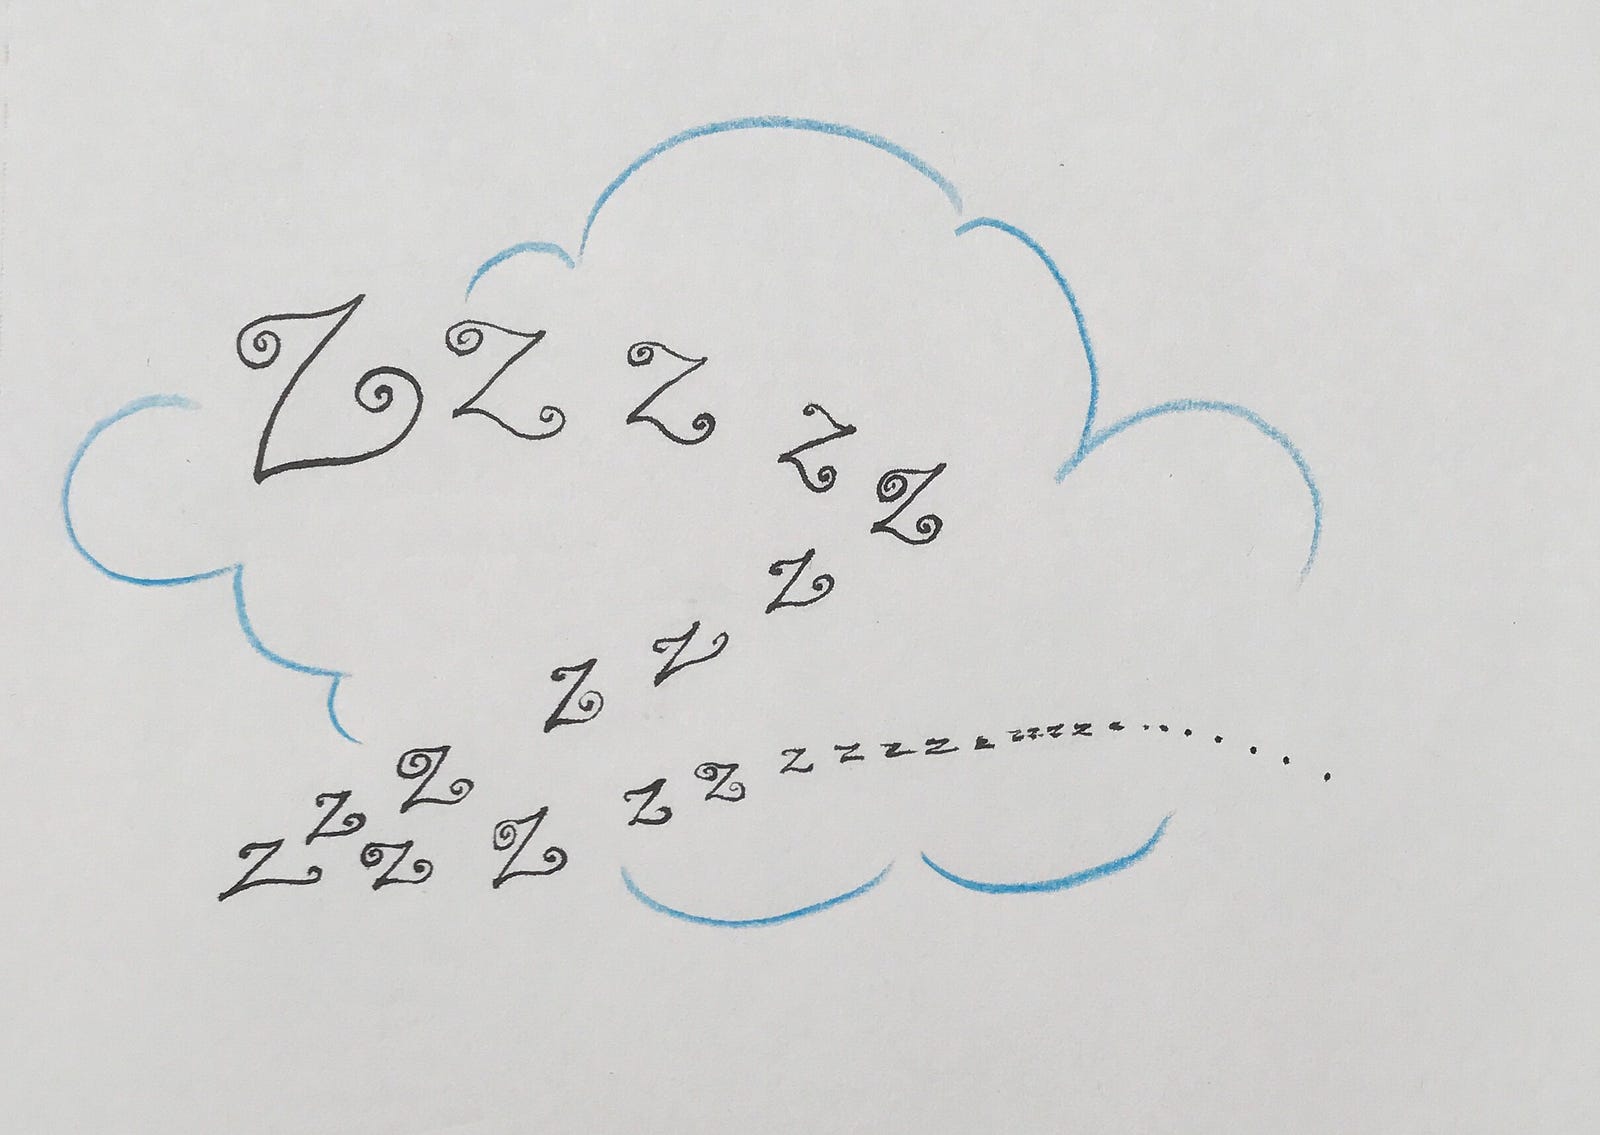 Z Z Z Z Z
Z
Z
Z
Z
Z
Z Z Z Z Z z z z z z z z z z z . . . . . . . .